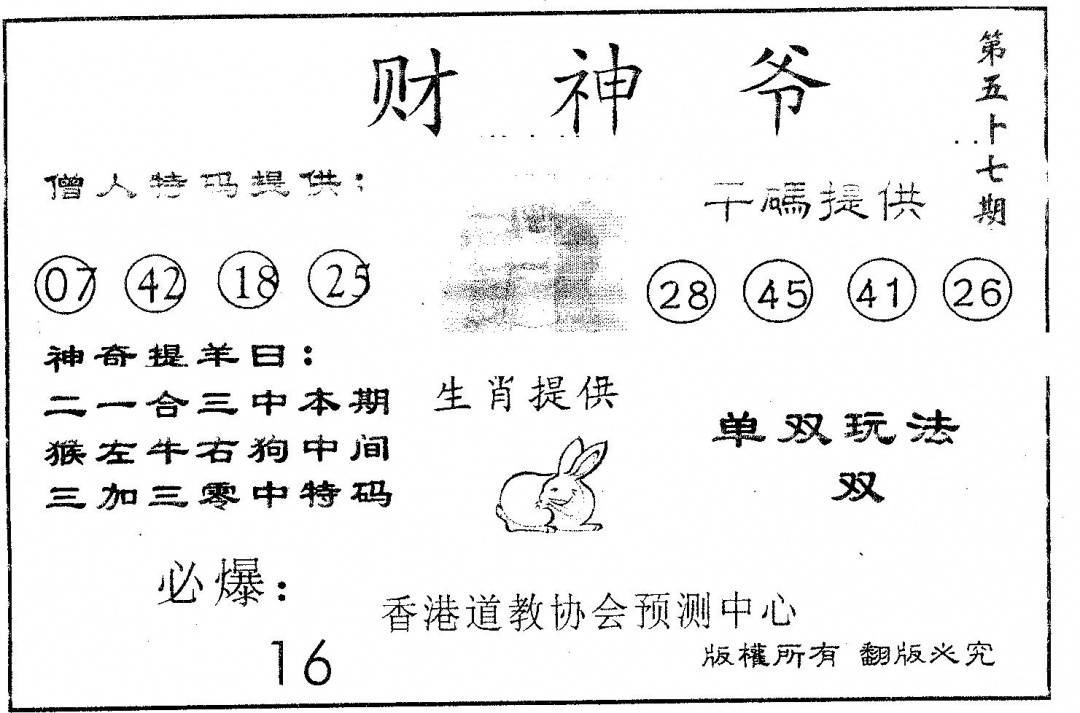 财神爷
第五十七期
僧人特码提供：
07 42 18 25
干碼提供
28 45 41 26
神奇提羊曰：
二一合三中本期
猴左牛右狗中间
三加三零中特码
生肖提供
单双玩法
双
必爆：
16
香港道教协会预测中心
版權所有 翻版必究